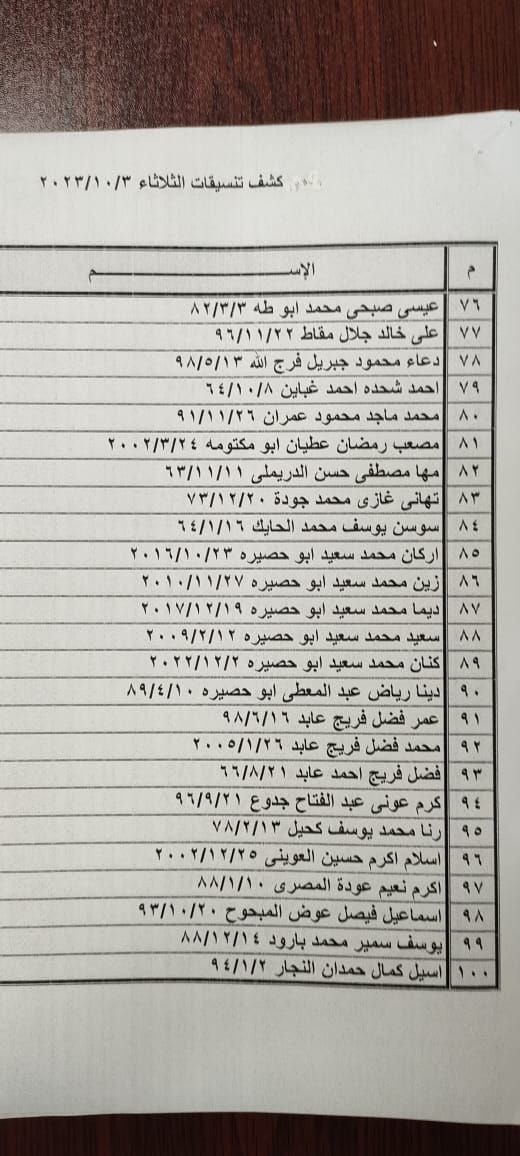 كشف تنسيقات الثلاثاء ٢٠٢٣/١٠/٣
م الإســـــــــــم
٧٦ عيسى صبحى محمد ابو طه ٨٢/٣/٣
٧٧ على خالد جلال مقاط ٩٦/١١/٢٢
٧٨ دعاء محمود جبريل فرج الله ٩٨/٥/١٣
٧٩ احمد شحده احمد غباين ٦٤/١٠/٨
٨٠ محمد ماجد محمود عمران ٩١/١١/٢٦
٨١ مصعب رمضان عطيان ابو مكتومه ٢٠٠٢/٣/٢٤
٨٢ مها مصطفى حسن الدريملى ٦٣/١١/١١
٨٣ تهانى غازى محمد جودة ٧٣/١٢/٢٠
٨٤ سوسن يوسف محمد الحايك ٦٤/١/١٦
٨٥ اركان محمد سعيد ابو حصيره ٢٠١٦/١٠/٢٣
٨٦ زين محمد سعيد ابو حصيره ٢٠١٠/١١/٢٧
٨٧ ديما محمد سعيد ابو حصيره ٢٠١٧/١٢/١٩
٨٨ سعيد محمد سعيد ابو حصيره ٢٠٠٩/٢/١٢
٨٩ كنان محمد سعيد ابو حصيره ٢٠٢٢/١٢/٢
٩٠ دينا رياض عبد المعطى ابو حصيره ٨٩/٤/١٠
٩١ عمر فضل فريج عابد ٩٨/٦/١٦
٩٢ محمد فضل فريج عابد ٢٠٠٥/١/٢٦
٩٣ فضل فريج احمد عابد ٦٦/٨/٢١
٩٤ كرم عونى عبد الفتاح جدوع ٩٦/٩/٢١
٩٥ رنا محمد يوسف كحيل ٧٨/٢/١٣
٩٦ اسلام اكرم حسين العوينى ٢٠٠٢/١٢/٢٥
٩٧ اكرم نعيم عودة المصرى ٨٨/١/١٠
٩٨ اسماعيل فيصل عوض المبحوح ٩٣/١٠/٢٠
٩٩ يوسف سمير محمد بارود ٨٨/١٢/١٤
١٠٠ اسيل كمال حمدان النجار ٩٤/١/٢